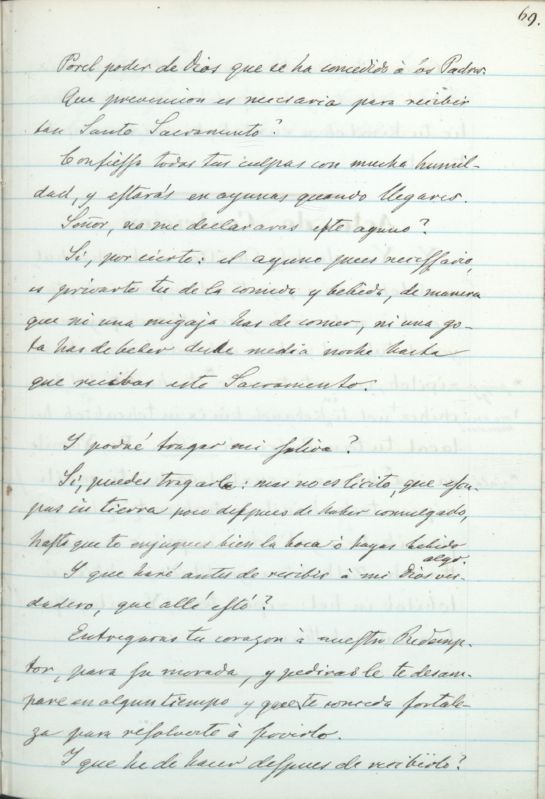 69.
Porel poder de Dios que se ha concedido à os Padres.
Que prevencion es necesaria para recibir
tan Santo Sacramento?
Confieffa todas tus culpas con mucha humil-
dad, y eftarás en ayunas quando llegares.
Señor, no me declararas efte ayuno?
Si, por cierto: el ayuno pues neceffario,
es privarte tu de la comida y bebida, de manera
que ni una migaja has de comer, ni una go-
ta has de beber desde media noche hasta
que recibas este Sacramento.
I podré tragar mi faliva?
Si, puedes tragarla: mas no es licito, que efcu-
pas en tierra poco defpues de haber comulgado,
hafta que te enjuagues bien la boca ò hayas bebido
algo.
I que haré antes de recibir à mi Dios ver-
dadero, que allé eftè?
Entregaras tu corazon à nueftro Redemp-
tor, para fu morada, y pediràsle te desam-
pare en algun tiempo y que te conceda fortale-
za para refolverte à fervirlo.
I que he de hacer defpues de recibirlo?